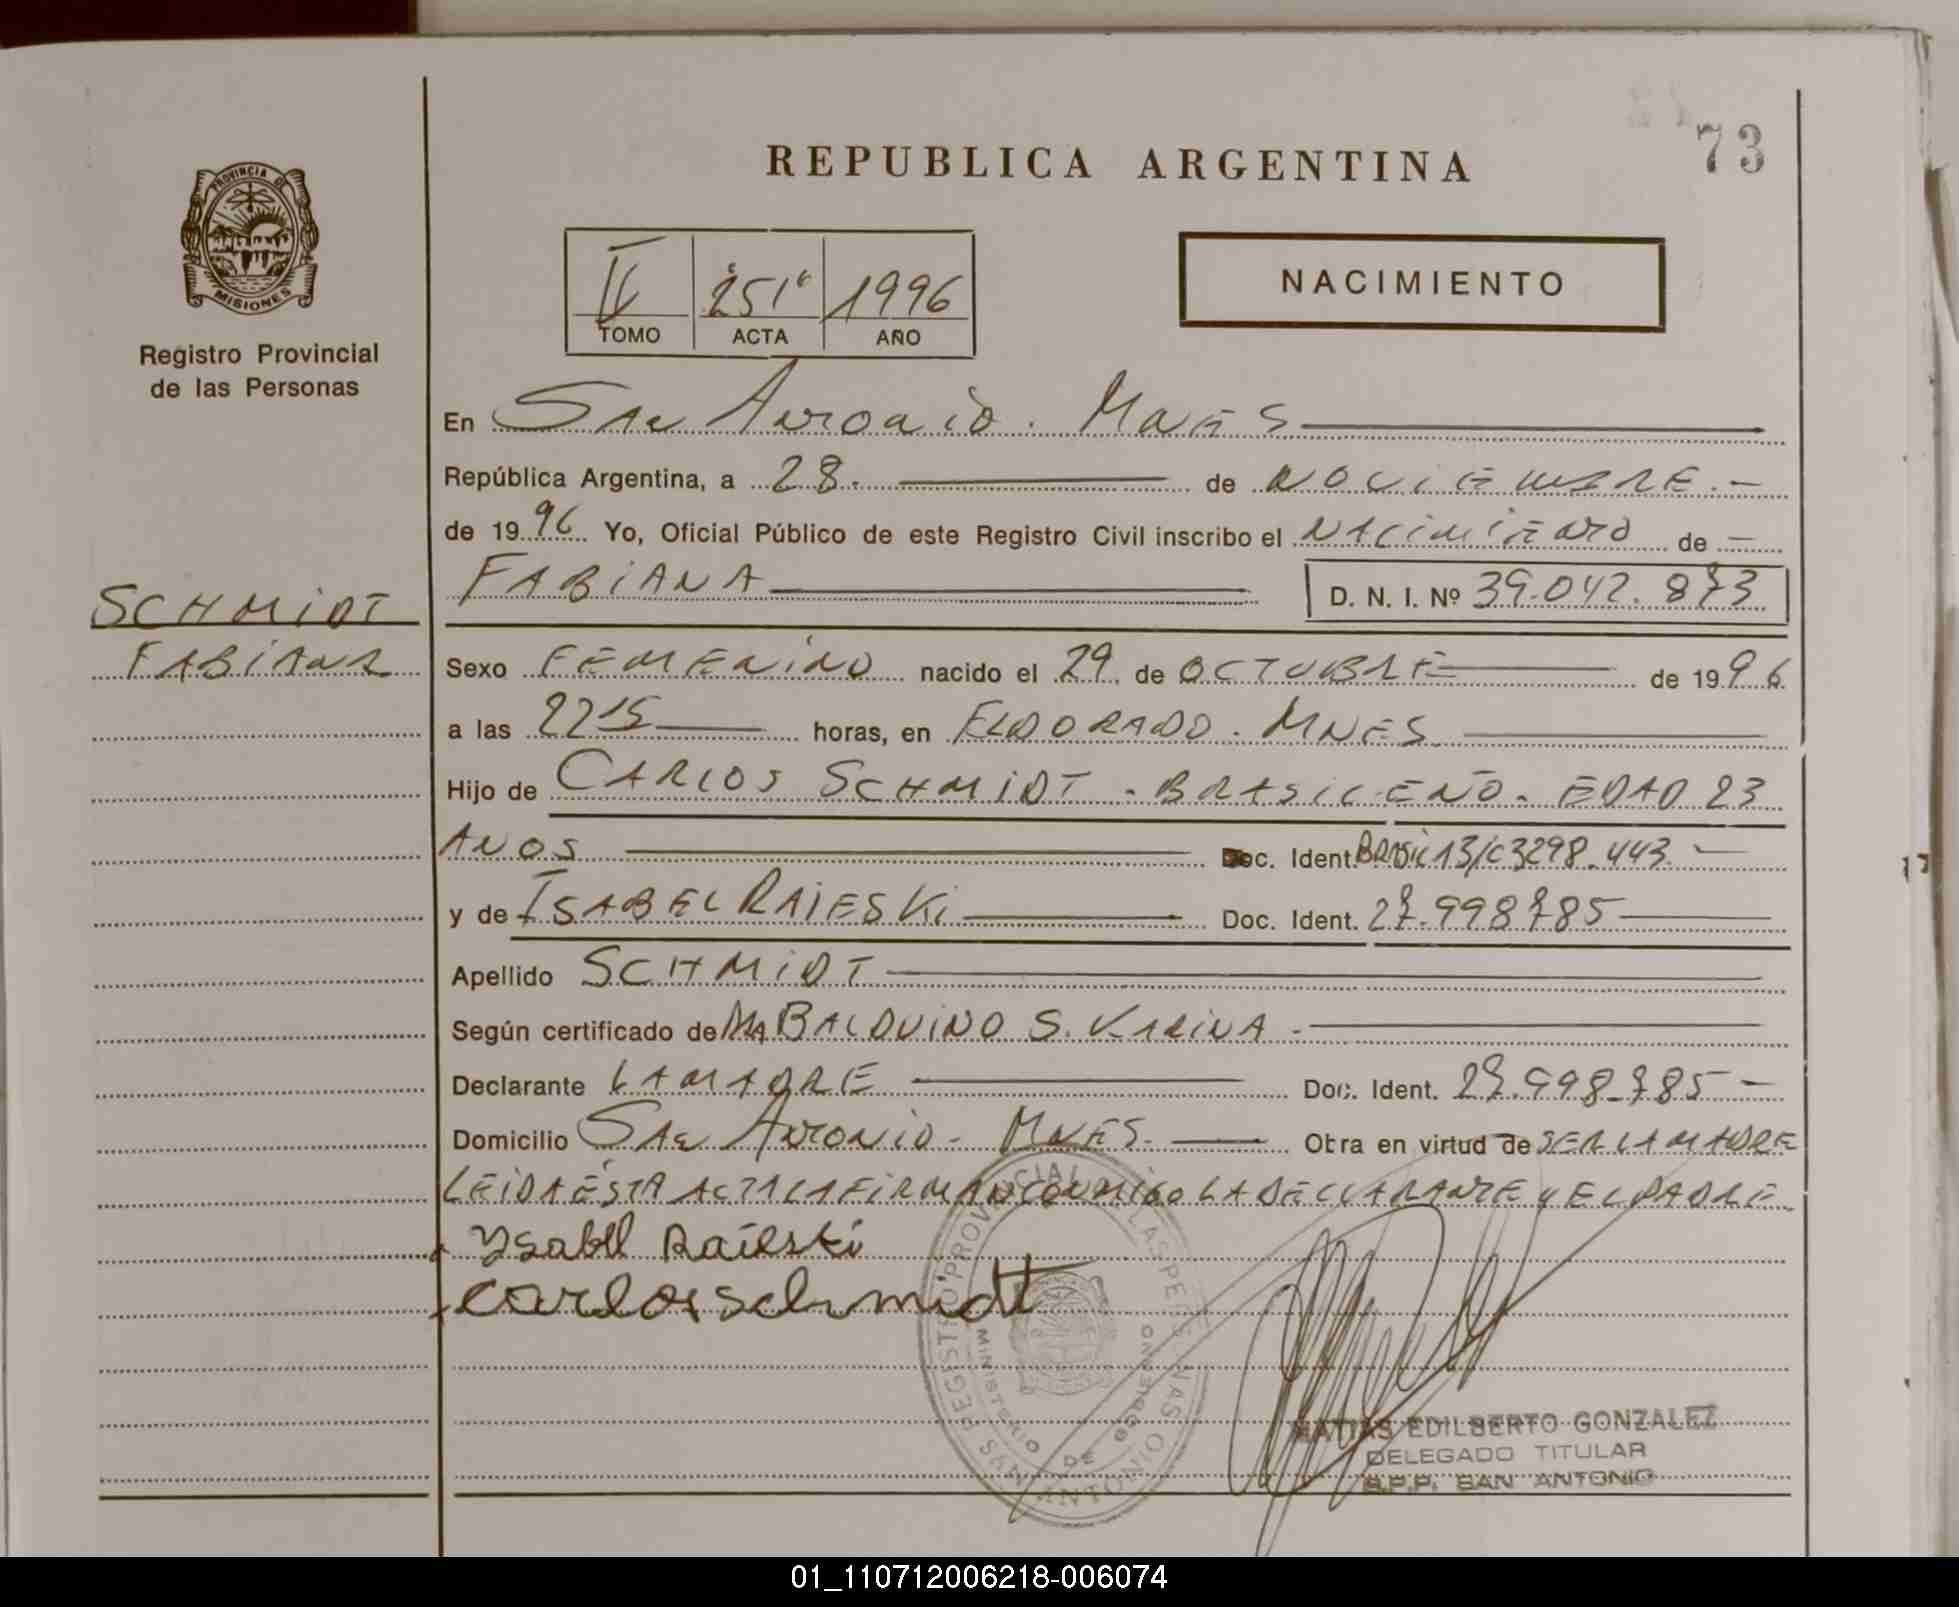 73
REPUBLICA ARGENTINA
PROVINCIA DE
MISIONES
Registro Provincial
de las Personas
II 251 1996
TOMO ACTA AÑO
NACIMIENTO
En San Antonio. Mnes
República Argentina, a 28. de NOVIEMBRE.-
de 1996 Yo, Oficial Público de este Registro Civil inscribo el NACIMIENTO de -
FABIANA D. N. I. Nº 39.042.873
SCHMIDT
FABIANA
Sexo FEMENINO nacido el 29 de OCTUBRE de 1996
a las 2215 horas, en ELDORADO. MNES
Hijo de CARLOS SCHMIDT - BRASILEÑO - EDAD 23
AÑOS Doc. Ident. Brasil 13/C3298.443.-
y de ISABEL RAIESKI Doc. Ident. 27.998785
Apellido SCHMIDT
Según certificado de BALDUINO S. KARINA.-
Declarante LA MADRE Doc. Ident. 27.998.785-
Domicilio San Antonio - MNES. Obra en virtud de SER LA MADRE
LEIDA ESTA ACTA LA FIRMAN CONMIGO LA DECLARANTE y EL PADRE
Ysabel Raieski
carlos schmidt
REGISTRO PROVINCIAL DE LAS PERSONAS
MINISTERIO DE GOBIERNO
SAN ANTONIO
MATIAS EDILBERTO GONZALEZ
DELEGADO TITULAR
R.P.P. SAN ANTONIO
01_110712006218-006074